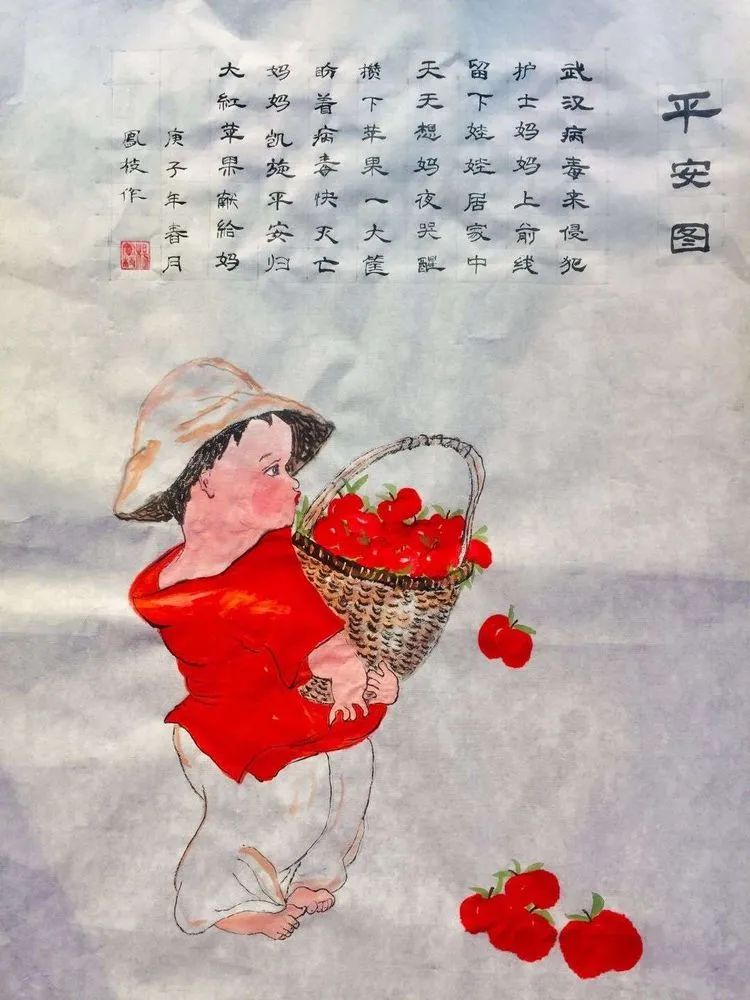 平安图
武汉病毒来侵犯
护士妈妈上前线
留下娃娃居家中
天天想妈夜哭醒
攒下苹果一大筐
盼着病毒快灭亡
妈妈凯旋平安归
大红苹果献给妈
庚子年春月
鳳枝作